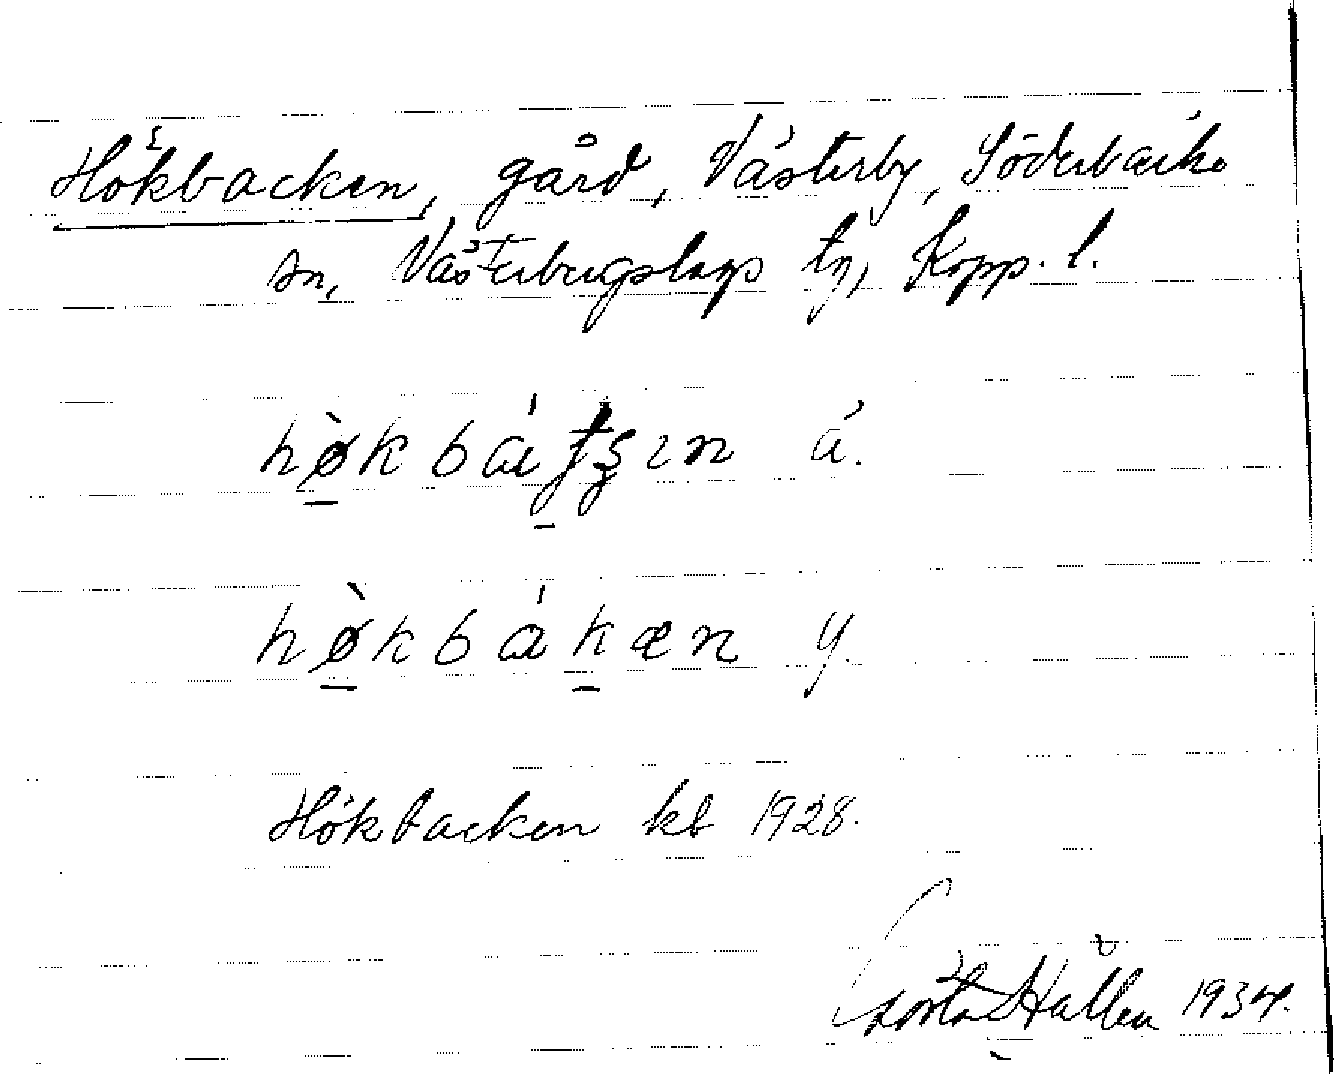 Hökbacken, gård, Västerby, Söderbärke
sn, Västerbergslags tg, Kopp. l.
hø̀kbátʂın á.
hø̀kbákæn y.
Hökbacken kb 1928.
Gösta Hållen 1934.